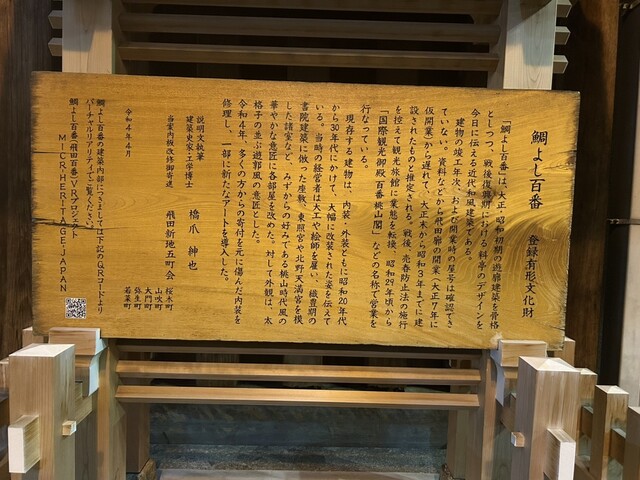 鯛よし百番 登録有形文化財
「鯛よし百番」は、大正、昭和初期の遊廓建築を骨格
としつつ、戦後復興期における料亭のデザインを
今日に伝える近代和風建築である。
建物の竣工年次、および開業時の屋号は確認でき
ていない。資料などから飛田廓の開業(大正7年に
仮開業)から遅れて、大正末から昭和3年までに建
設されたものと推定される。戦後、売春防止法の施行
を控えて観光旅館に業態を転換、昭和29年頃から
「国際観光御殿 百番 桃山閣」などの名称で営業を
行なっている。
現存する建物は、内装・外装ともに昭和20年代
から30年代にかけて、大幅に改装された姿を伝えて
いる。当時の経営者は大工や絵師を雇い、織豊期の
書院建築に倣った座敷、東照宮や北野天満宮を模
した諸室など、みずからの好みである桃山時代風の
華やかな意匠に各部屋を改めた。対して外観は、太
格子の並ぶ遊郭風の意匠とした。
令和4年、多くの方からの寄付を元に傷んだ内装を
修理し、一部に新たなアートを導入した。
説明文執筆
建築史家・工学博士 橋爪 紳也
当案内板改修御寄進 飛田新地五町会
桜木町
山吹町
大門町
弥生町
若菜町
令和4年4月
鯛よし百番の建築内部につきましては下記のQRコードより
バーチャルリアリティでご覧ください。
鯛よし百番(飛田百番)VRプロジェクト
MICR・HERITAGE・JAPAN